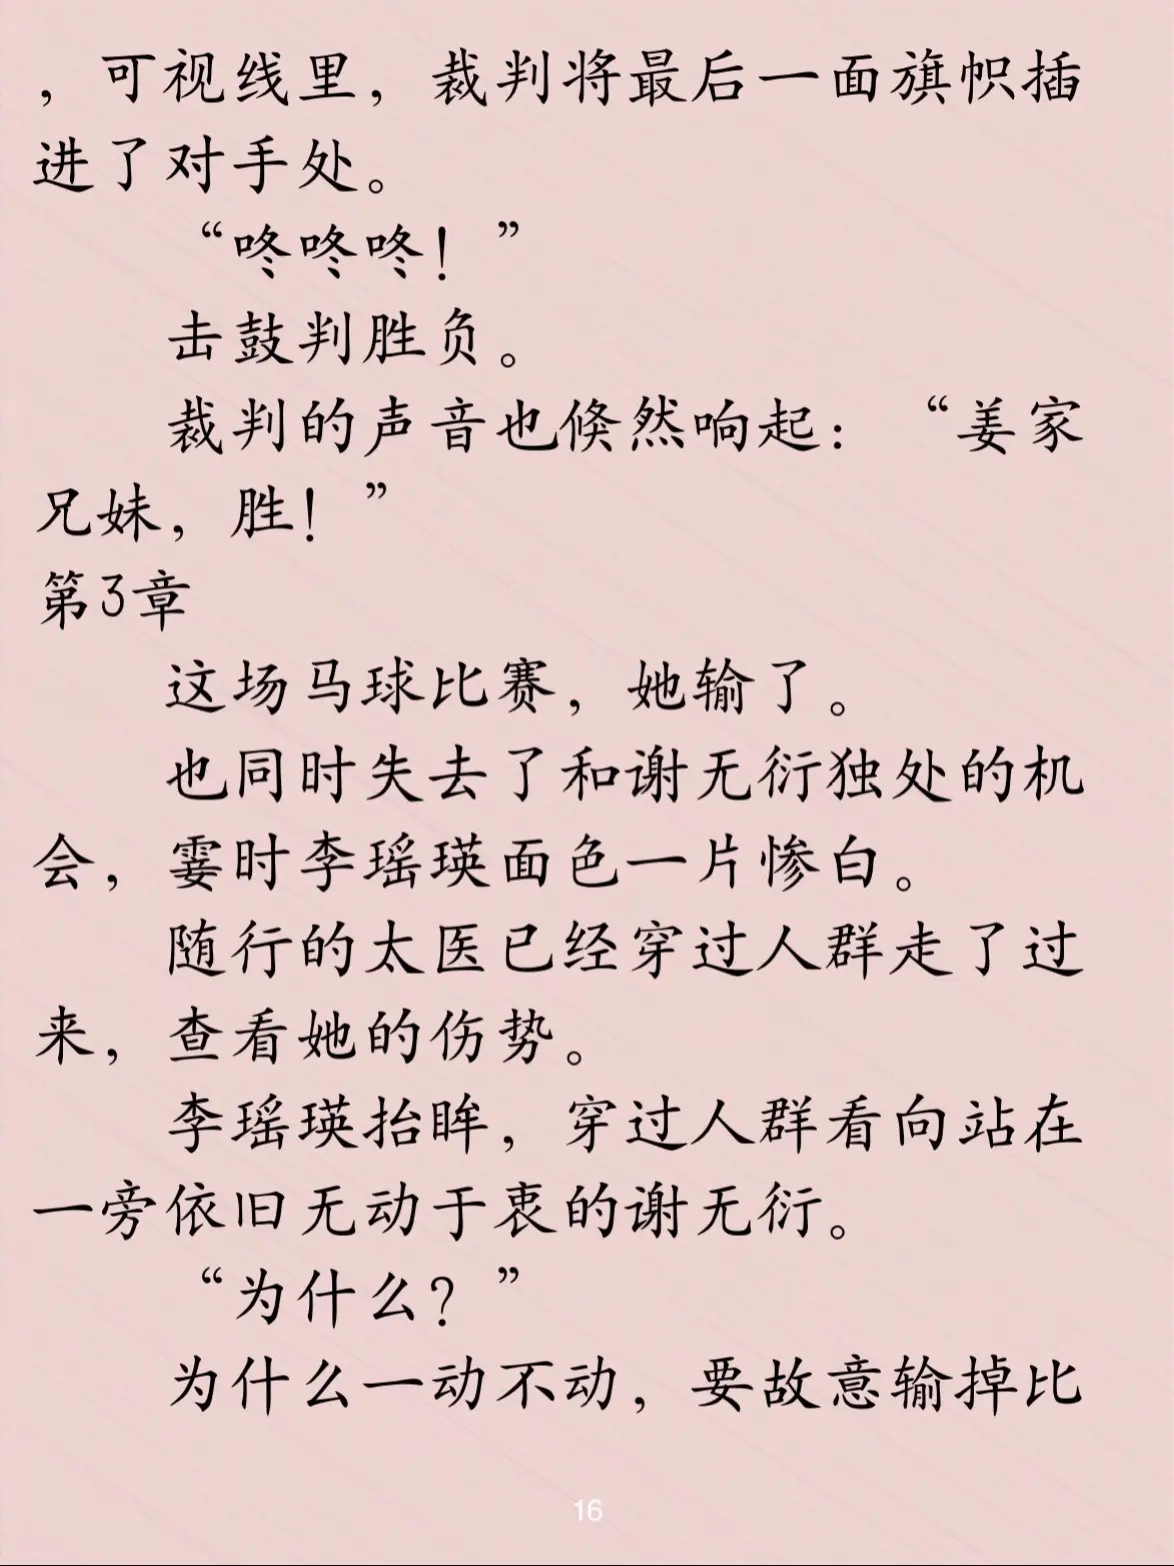 ，可视线里，裁判将最后一面旗帜插
进了对手处。
“咚咚咚！”
击鼓判胜负。
裁判的声音也倏然响起：“姜家
兄妹，胜！”
第3章
这场马球比赛，她输了。
也同时失去了和谢无衍独处的机
会，霎时李瑶瑛面色一片惨白。
随行的太医已经穿过人群走了过
来，查看她的伤势。
李瑶瑛抬眸，穿过人群看向站在
一旁依旧无动于衷的谢无衍。
“为什么？”
为什么一动不动，要故意输掉比
16